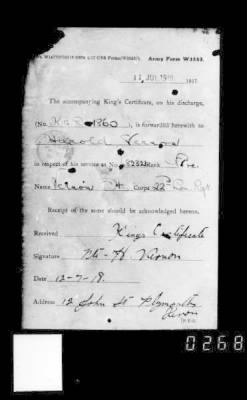 Army Form W3553.
11 JUL 1918 1917.
The accompanying King's Certificate, on his discharge,
(No. 1860), is forwarded herewith to
Harold Vernon
in respect of his service as No. Rank Pte
Name Vernon H. Corps 22
Receipt of the same should be acknowledged hereon.
Received King's Certificate
Signature Pte H Vernon
Date 12-7-18.
Address 12 John St Plymouth
Devon
0268